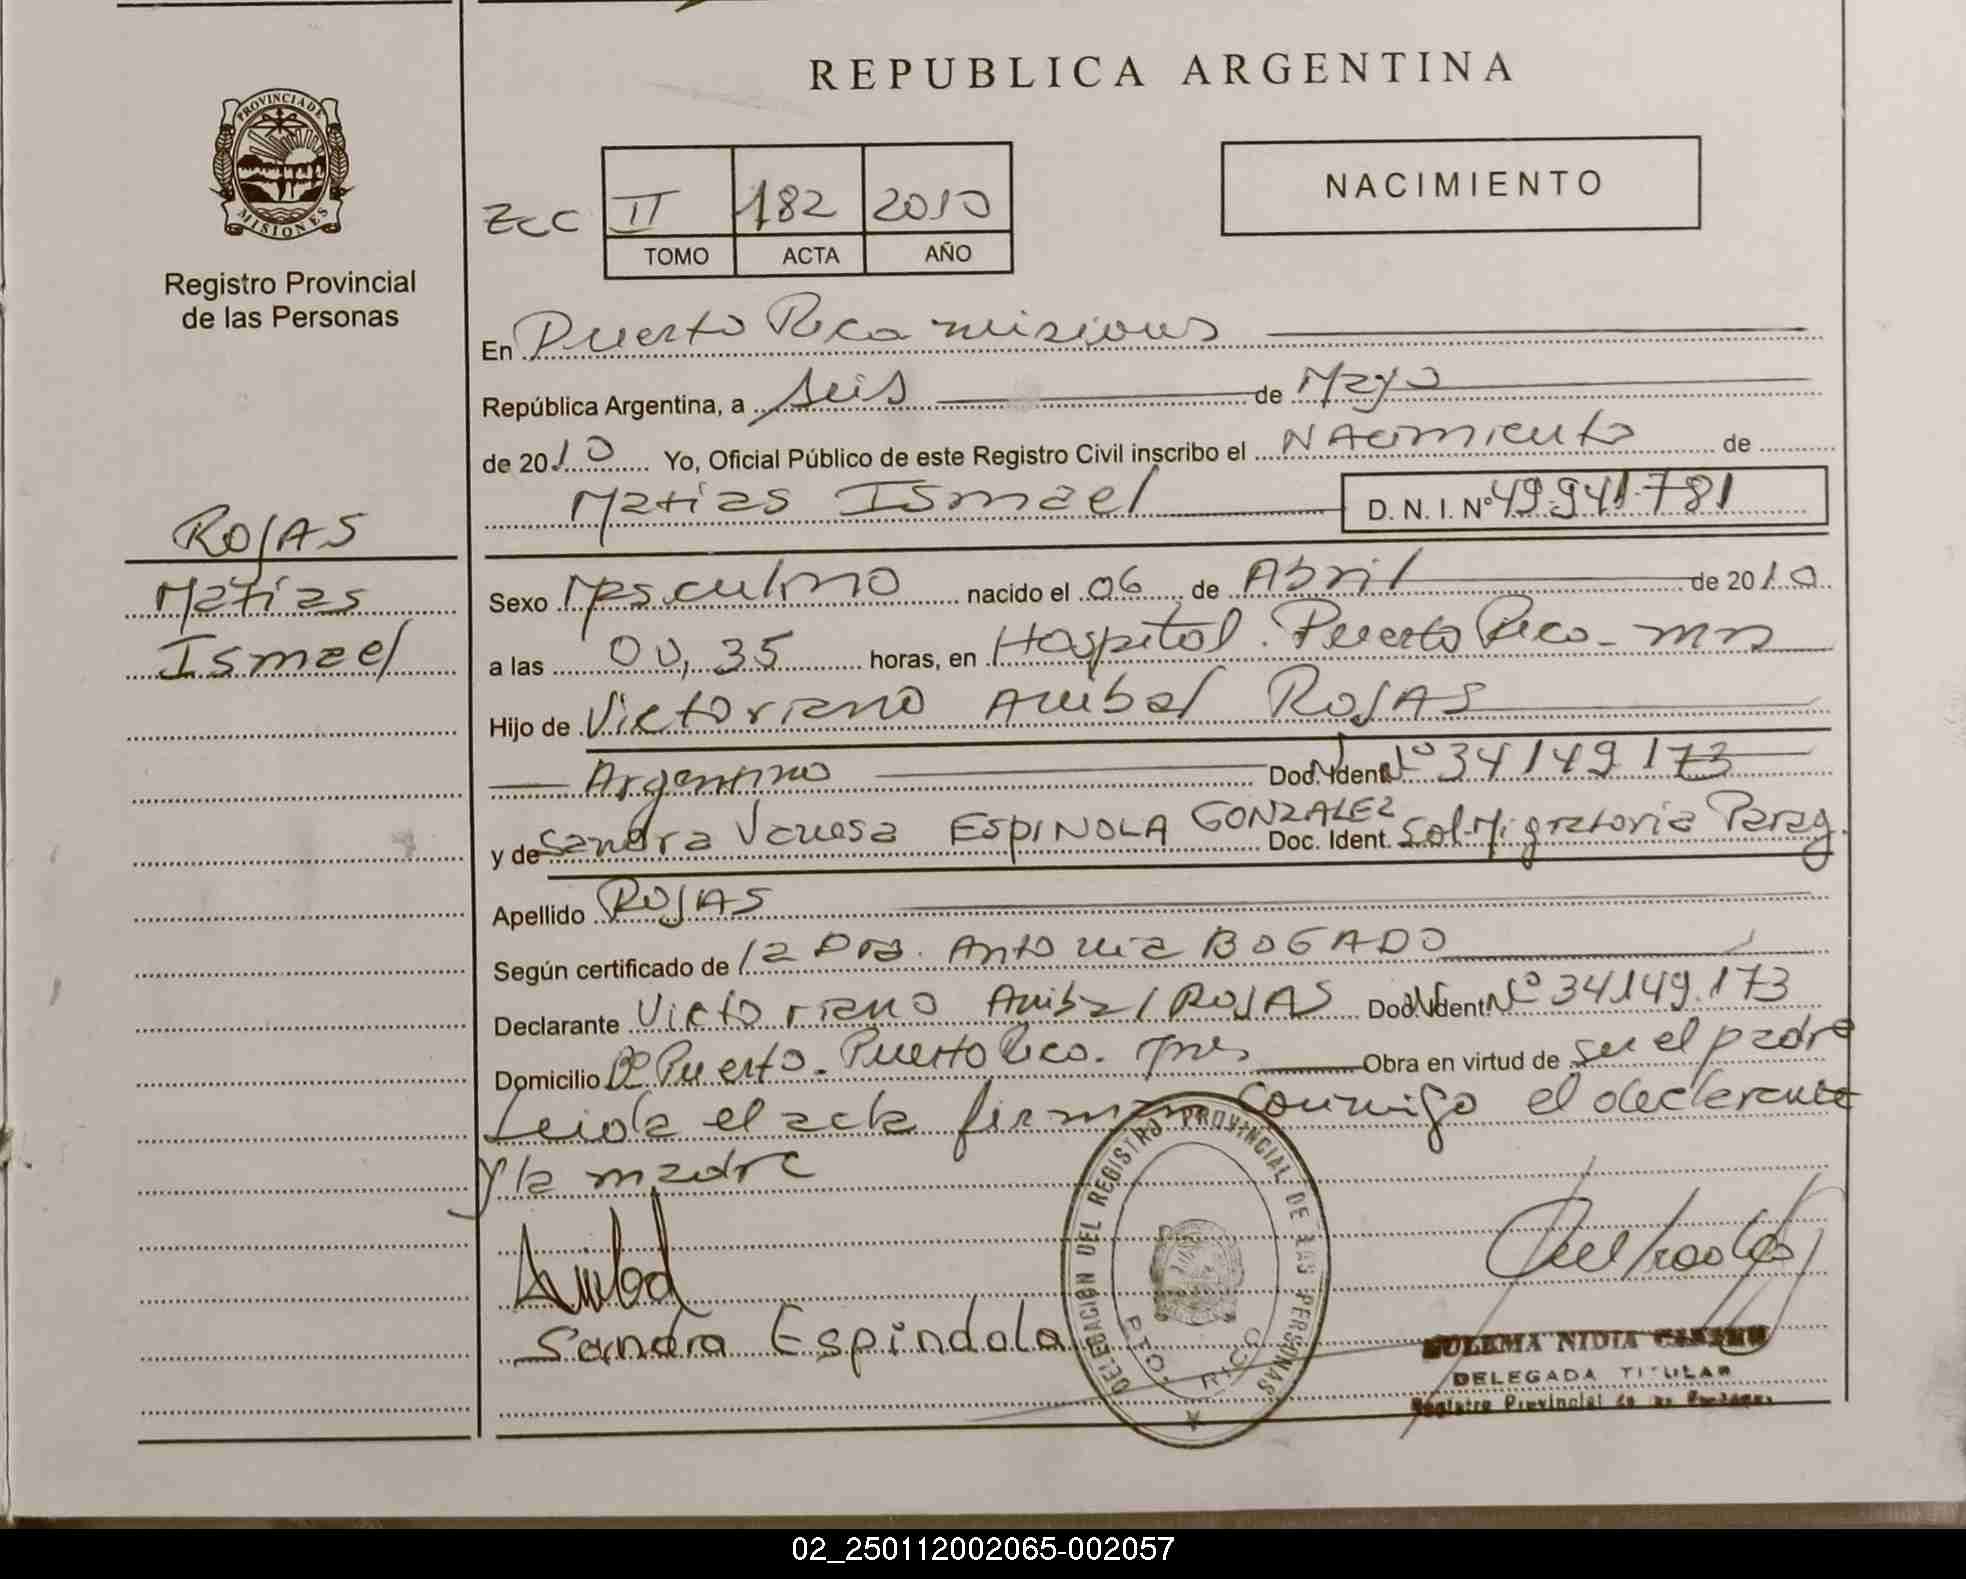 REPUBLICA ARGENTINA
PROVINCIA DE MISIONES
Registro Provincial
de las Personas
NACIMIENTO
II 182 2010
TOMO ACTA AÑO
En Puerto Rico misiones
República Argentina, a seis de Mayo
de 2010 Yo, Oficial Público de este Registro Civil inscribo el NAcimiento de
Matias Ismael D. N. I. Nº 49.941.781
ROJAS
Matias
Ismael
Sexo Masculino nacido el 06 de Abril de 2010
a las 00,35 horas, en Hospital. Puerto Rico - mns
Hijo de Victoriano Anibal ROJAS
Argentino Doc. Ident. Nº 34149173
y de Sandra Vanesa ESPINOLA GONZALEZ Doc. Ident. Sol. Migratoria Parag.
Apellido ROJAS
Según certificado de la Dra. Antonia BOGADO
Declarante Victoriano Anibal ROJAS Doc. Ident. Nº 34149.173
Domicilio Bº Puerto - Puerto Rico - mnes Obra en virtud de ser el padre
Leida el acta firman conmigo el declarante
y la madre
Anibal
Sandra Espindola
DELEGACION DEL REGISTRO PROVINCIAL DE LAS PERSONAS
PTO. RICO
NIDIA
DELEGADA TITULAR
Registro Provincial de las Personas
02_250112002065-002057